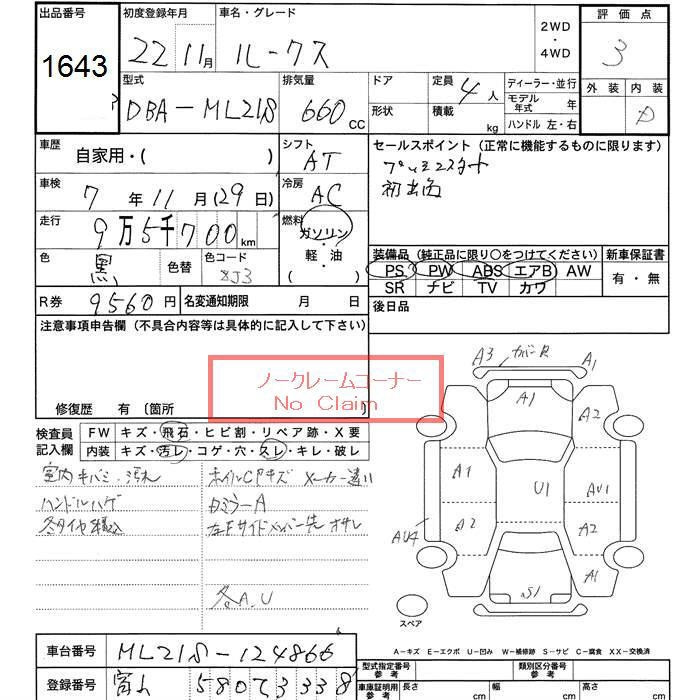 出品番号
1643
3
初度登録年月
22 11月
車名・グレード
ルークス
2WD
・
4WD
評価点
3
外装 内装
D
型式
DBA-ML21S
排気量
660 CC
ドア
形状
定員
4人
積載
kg
ディーラー・並行
モデル年式 年
ハンドル 左・右
車歴
自家用・( )
シフト
AT
セールスポイント(正常に機能するものに限ります)
プッシュスタート
車検
7年11月(29日)
冷房
AC
走行
9万5千700km
燃料
ガソリン
・
軽・油
( )
色
黒
色替
色コード
ZJ3
装備品(純正品に限り○をつけてください)
新車保証書
PS PW ABS エアB AW
SR ナビ TV カワ
有・無
R券 9560円
名変通知期限 月 日
後日品
注意事項申告欄(不具合内容等は具体的に記入して下さい)
ノークレームコーナー
No Claim
修復歴 有〔箇所 〕
検査員記入欄
FW キズ・飛石・ヒビ割・リペア跡・X要
内装 キズ・汚レ・コゲ・穴・スレ・キレ・破レ
室内キバミ・汚れ
ハンドルハゲ
冬タイヤ積込
ホイルCPキズ メーカー違い
左Fサイドメンバー先
各A.U
A3 カバーR A1
A1
A2
A1
U1
AU1
A2
A2
AU4
S1
A1
スペア
A-キズ E-エクボ U-凹み W-補修跡 S-サビ C-腐食 XX-交換済
車台番号 ML21S-124866
登録番号 富山 580て3338
型式指定番号 参考
類別区分番号 参考
車庫証明用 参考
長さ cm
幅 cm
高さ cm